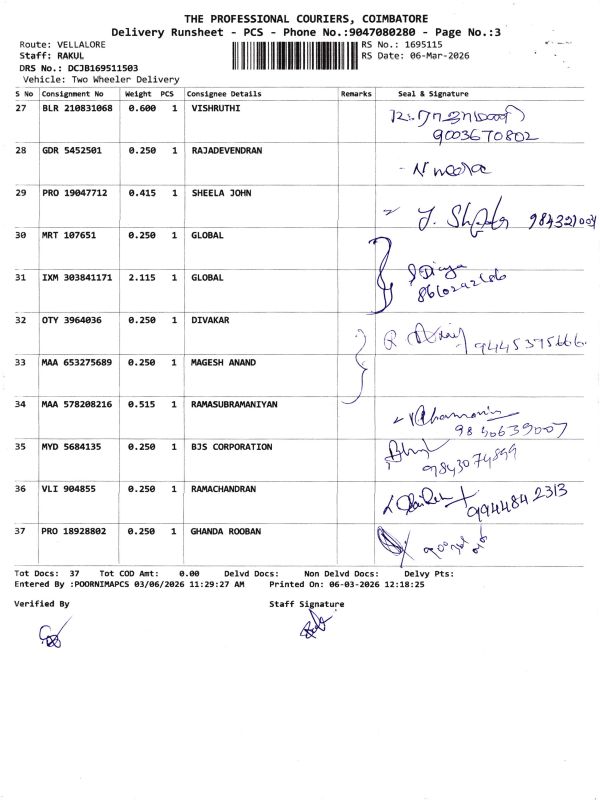 THE PROFESSIONAL COURIERS, COIMBATORE
Delivery Runsheet - PCS - Phone No.:9047080280 - Page No.:3
Route: VELLALORE
RS No.: 1695115
Staff: RAKUL
RS Date: 06-Mar-2026
DRS No.: DCJB169511503
Vehicle: Two Wheeler Delivery
S No Consignment No Weight PCS Consignee Details Remarks Seal & Signature
27 BLR 210831068 0.600 1 VISHRUTHI
9003670802
28 GDR 5452501 0.250 1 RAJADEVENDRAN
29 PRO 19047712 0.415 1 SHEELA JOHN
30 MRT 107651 0.250 1 GLOBAL
31 IXM 303841171 2.115 1 GLOBAL
32 OTY 3964036 0.250 1 DIVAKAR
9445375666
33 MAA 653275689 0.250 1 MAGESH ANAND
34 MAA 578208216 0.515 1 RAMASUBRAMANIYAN
35 MYD 5684135 0.250 1 BJS CORPORATION
9843074899
36 VLI 904855 0.250 1 RAMACHANDRAN
9944842313
37 PRO 18928802 0.250 1 GHANDA ROOBAN
Tot Docs: 37 Tot COD Amt: 0.00 Delvd Docs: Non Delvd Docs: Delvy Pts:
Entered By :POORNIMAPCS 03/06/2026 11:29:27 AM Printed On: 06-03-2026 12:18:25
Verified By Staff Signature